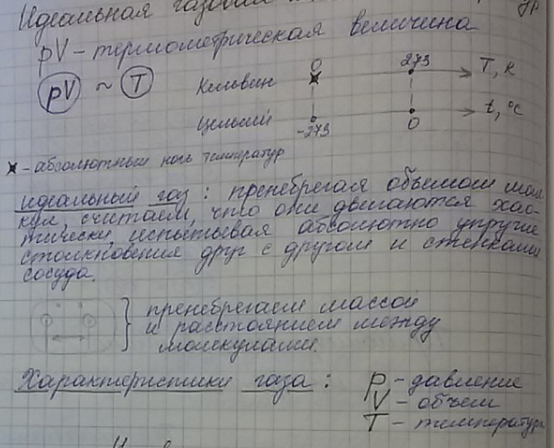 Идеальная газовая
pV - термометрическая величина
pV ~ T
Кельвин 0 273 T, К
Цельсий -273 0 t, °C
- абсолютный ноль температур
идеальный газ: пренебрегая объемом моле
кул считаем, что они двигаются хао-
тически, испытывая абсолютно упругие
столкновения друг с другом и стенками
сосуда.
пренебрегаем массой
и расстоянием между
молекулами.
Характеристики газа: p - давление
V - объем
T - температура